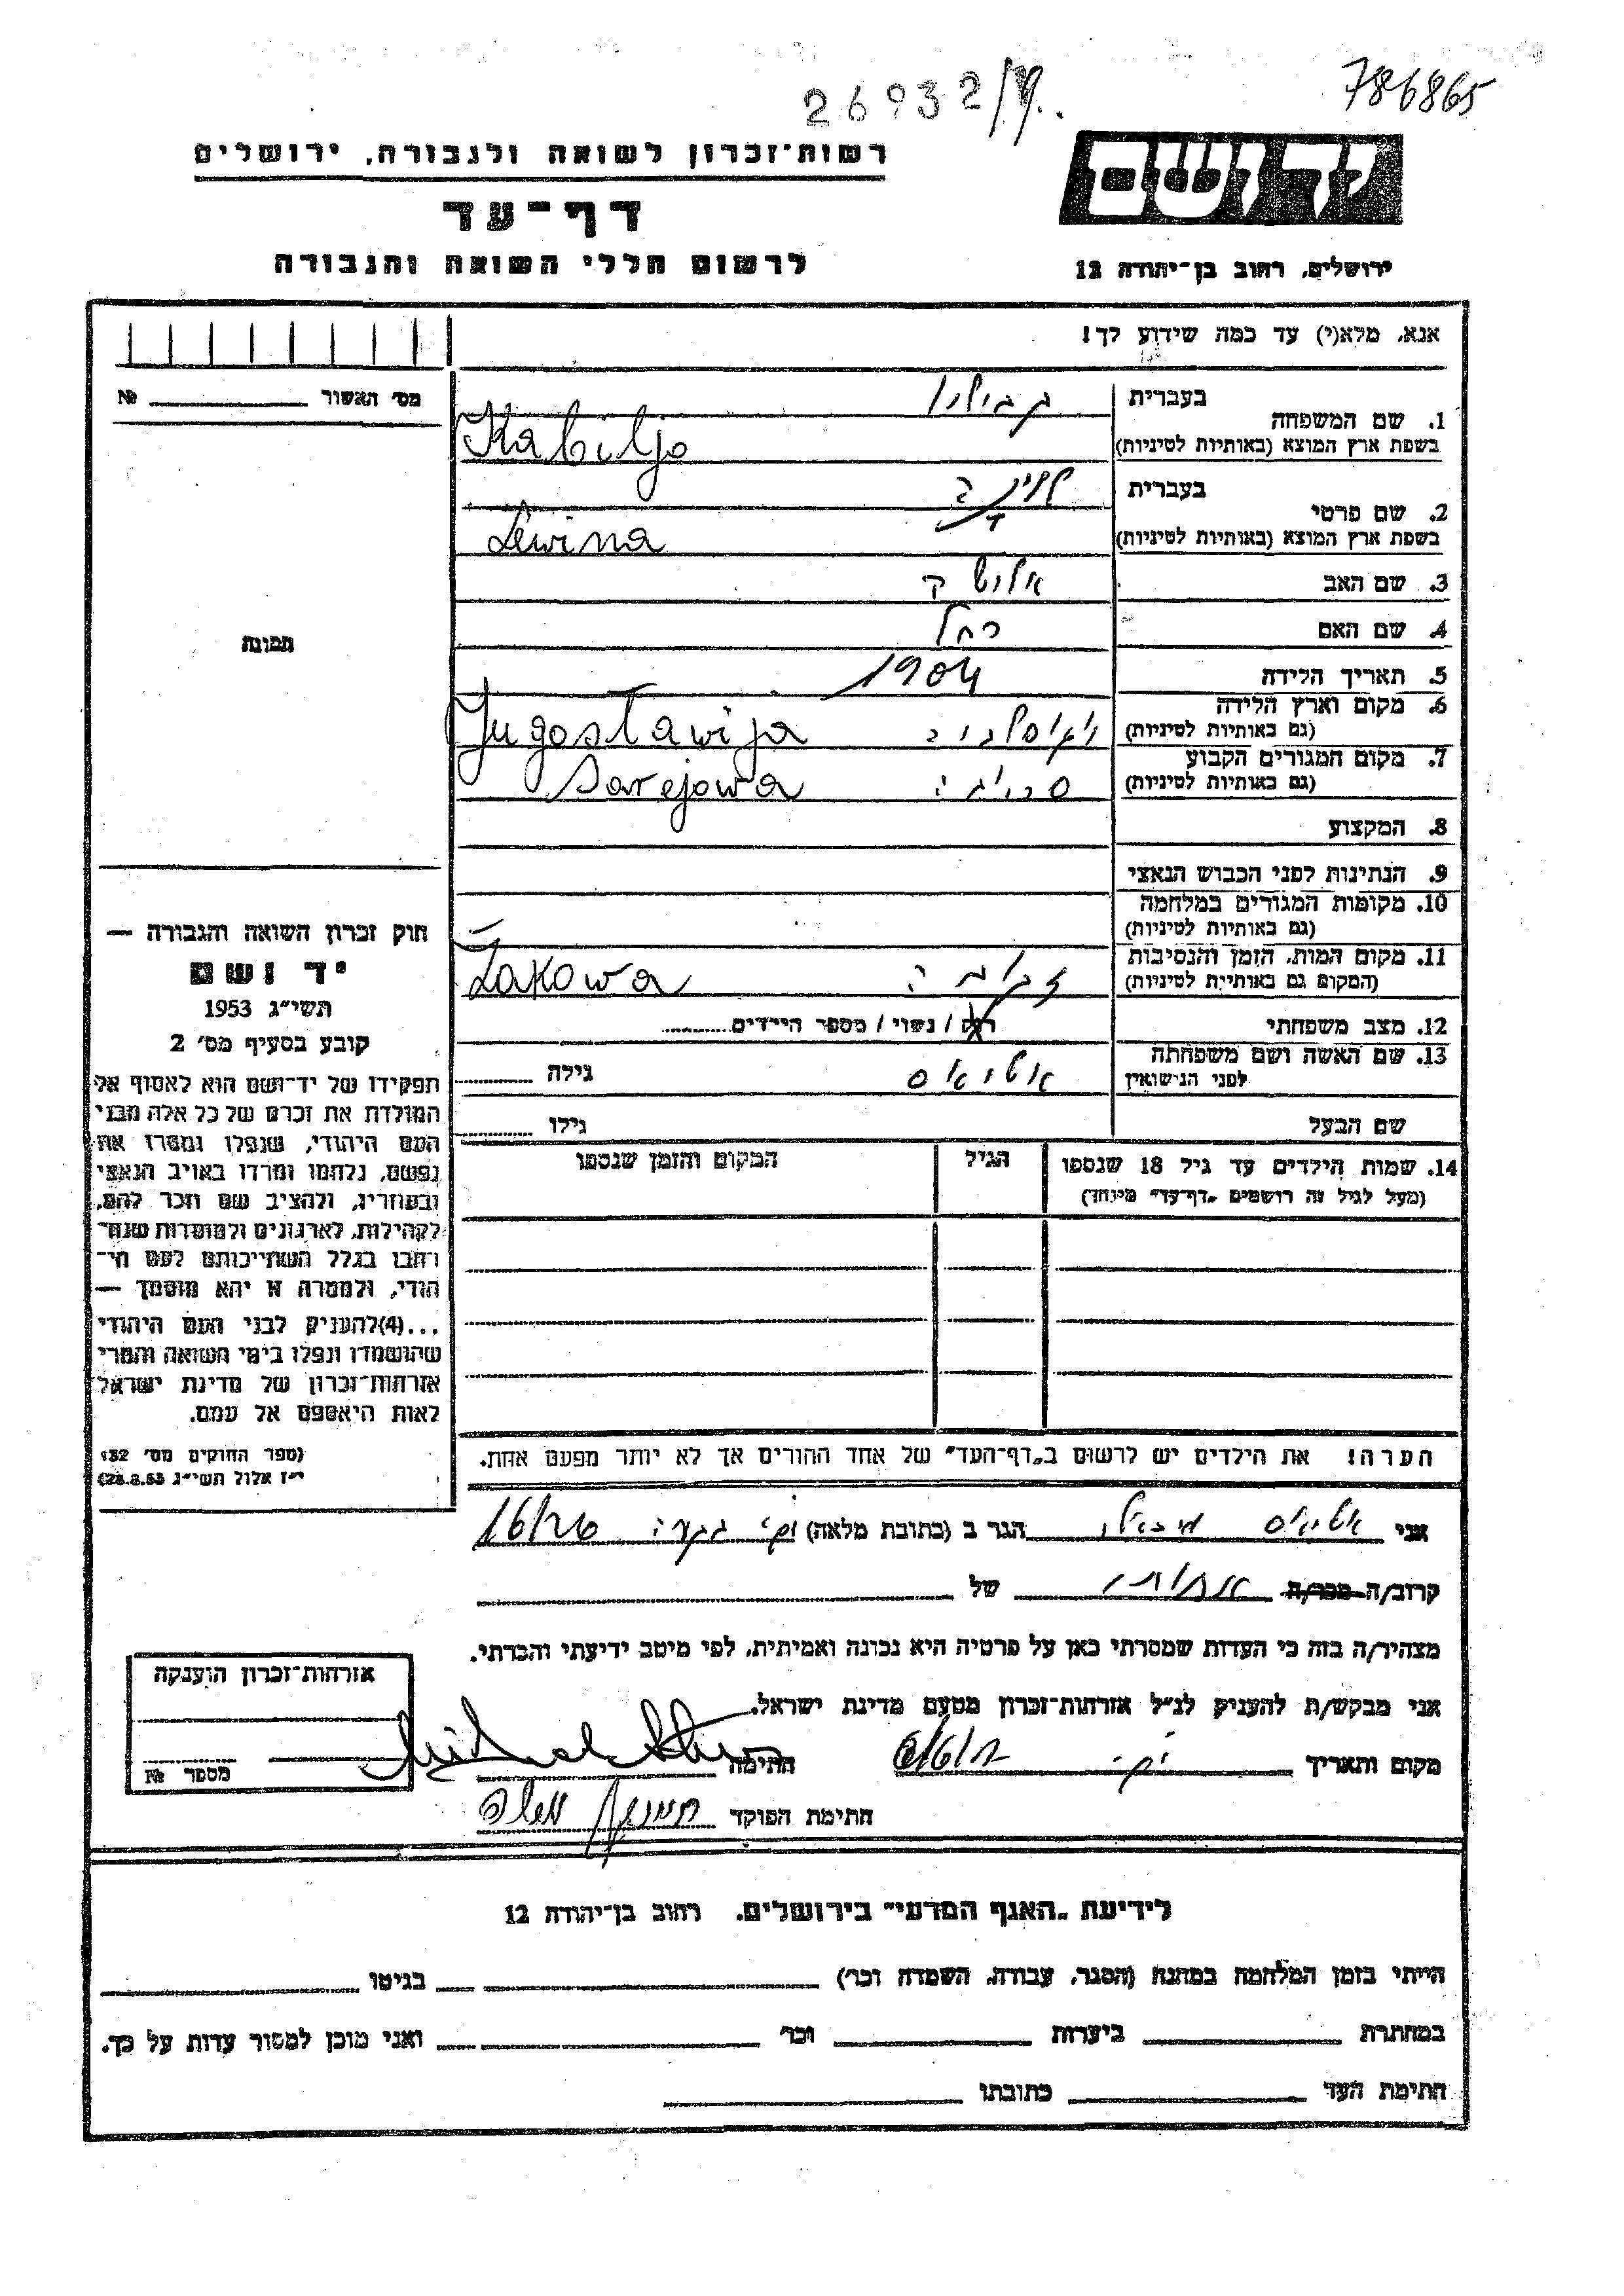 26932/
786865
יד ושם
רשות־זכרון לשואה ולגבורה, ירושלים
דף־עד
לרשום חללי השואה והגבורה
ירושלים, רחוב בן־יהודה 12
אנא, מלא(י) עד כמה שידוע לך!
מס׳ האשור № 
1. שם המשפחה
בעברית קביליו
בשפת ארץ המוצא (באותיות לטיניות) Kabiljo
2. שם פרטי
בעברית
בשפת ארץ המוצא (באותיות לטיניות) Lewina
3. שם האב
4. שם האם רחל
5. תאריך הלידה 1904
6. מקום וארץ הלידה
(גם באותיות לטיניות) Jugoslawija
7. מקום המגורים הקבוע
(גם באותיות לטיניות) Sarejowa
8. המקצוע
9. הנתינות לפני הכבוש הנאצי
10. מקומות המגורים במלחמה
(גם באותיות לטיניות)
11. מקום המות, הזמן והנסיבות
(המקום גם באותיות לטיניות) Żakowa
12. מצב משפחתי רוק / נשוי / מספר הילדים
13. שם האשה ושם משפחתה
לפני הנישואין אטיאס גילה
שם הבעל גילו
14. שמות הילדים עד גיל 18 שנספו
(מעל לגיל זה רושמים „דף־עד״ מיוחד)
הגיל
המקום והזמן שנספו
הערה! את הילדים יש לרשום ב„דף־העד״ של אחד ההורים אך לא יותר מפעם אחת.
תמונה
חוק זכרון השואה והגבורה —
יד ושם
תשי״ג 1953
קובע בסעיף מס׳ 2
תפקידו של יד־ושם הוא לאסוף אל
המולדת את זכרם של כל אלה מבני
העם היהודי, שנפלו ומסרו את
נפשם, נלחמו ומרדו באויב הנאצי
ובעוזריו, ולהציב שם וזכר להם,
לקהילות, לארגונים ולמוסדות שנח־
רבו בגלל השתייכותם לעם הי־
הודי, ולמטרה זו יהא מוסמך —
...(4)להעניק לבני העם היהודי
שהושמדו ונפלו בימי השואה והמרי
אזרחות־זכרון של מדינת ישראל
לאות היאספם אל עמם.
(ספר החוקים מס׳ 132,
י״ז אלול תשי״ג 28.8.53)
אני אטיאס מיכאל הגר ב (כתובת מלאה) 16/226
קרוב/ה מכר/ה של
מצהיר/ה בזה כי העדות שמסרתי כאן על פרטיה היא נכונה ואמיתית, לפי מיטב ידיעתי והכרתי.
אני מבקש/ת להעניק לנ״ל אזרחות־זכרון מטעם מדינת ישראל.
מקום ותאריך חתימה
חתימת הפוקד
אזרחות־זכרון הוענקה
מספר №
לידיעת „האגף המדעי״ בירושלים, רחוב בן־יהודה 12
הייתי בזמן המלחמה במחנה (הסגר, עבודה, השמדה וכו׳) בגיטו
במחתרת ביערות וכו׳ ואני מוכן למסור עדות על כך.
חתימת העד כתובתו